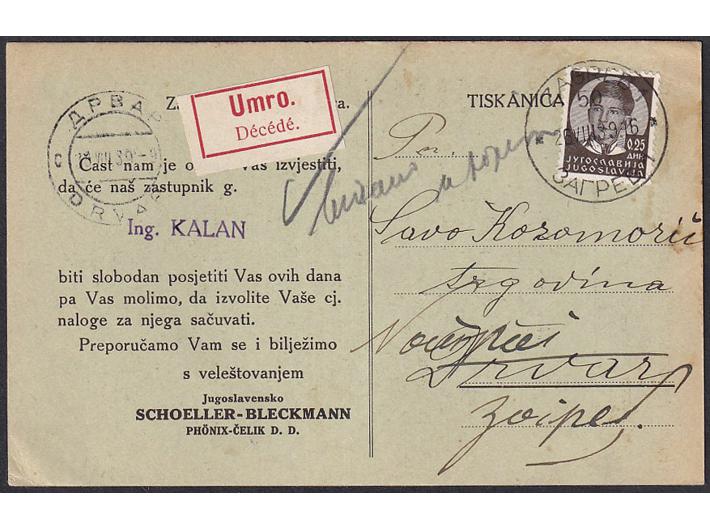 ДРВАР
DRVAR
Z
ra.
Umro.
Décédé.
Čast nam je o Vas izvjestiti,
da će naš zastupnik g.
Ing. KALAN
biti slobodan posjetiti Vas ovih dana
pa Vas molimo, da izvolite Vaše cj.
naloge za njega sačuvati.
Preporučamo Vam se i bilježimo
s veleštovanjem
Jugoslavensko
SCHOELLER-BLECKMANN
PHÖNIX-ČELIK D. D.
TISKANICA
50
ЗАГРЕБ
0,25
ДИН.
ЈУГОСЛАВИЈА
JUGOSLAVIJA
Savo Kozomorić
trgovina
Drvar